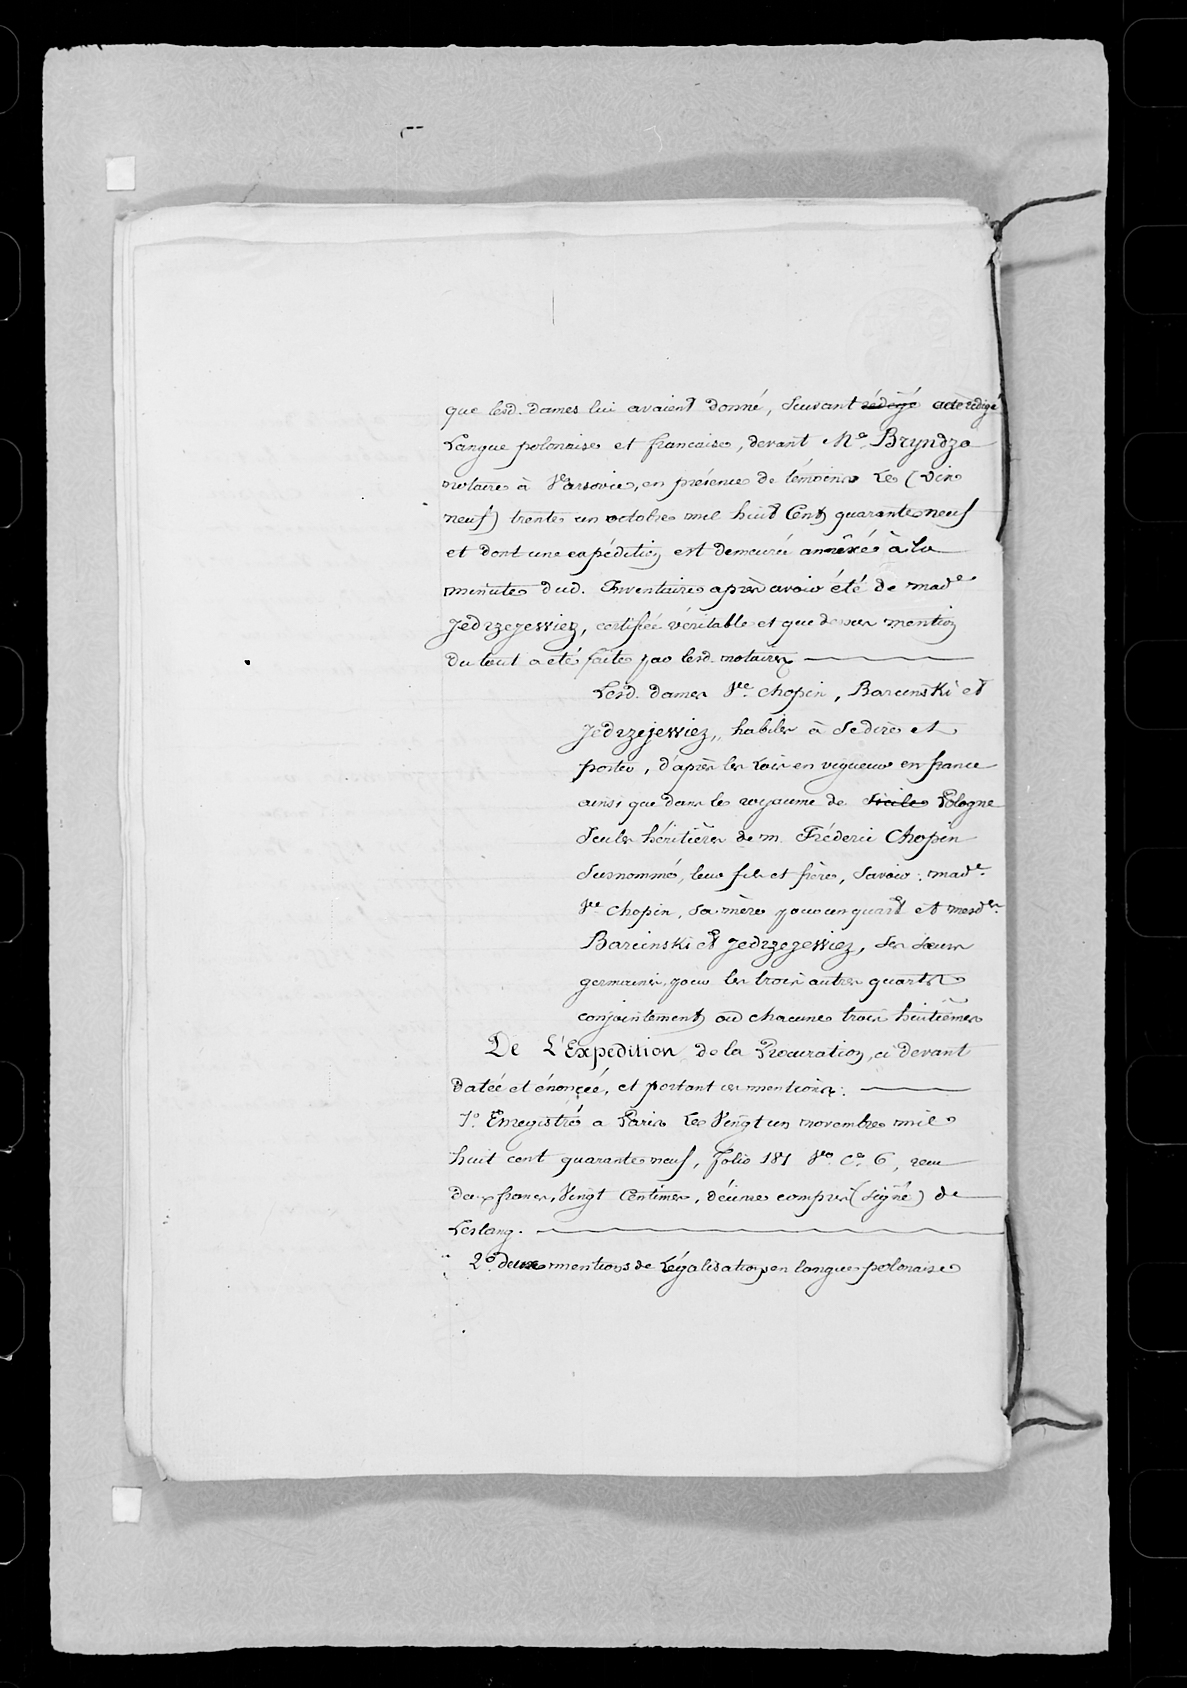 que lesd. dames lui avaient donné, suivant rédigé acte rédigé
Langue polonaise et francaise, devant Me. Bryndza
notaire à Varsovie, en présence de témoins Le (dix
neuf) trente un octobre mil huit Cent quarante neuf
et dont une expédition est demeurée annexée à la
minute dud. Inventaire après avoir été de made
Jedrzejewiez, certifiée véritable et que dessus mention
du tout a été faite par lesd. notaires
Lesd. dames Ve. Chopin, Barcinski et
Jedrzejewiez, habiles à se dire et
porter, d'après les Lois en vigueur en france
ainsi que dans le royaume de Sicile Pologne
Seules héritières de m. Fréderic Chopin
Susnommé, leur fils et frère, Savoir: made.
Ve Chopin, sa mère pour un quart et mesdes.
Barcinski et Jedrzejewiez, ses sœurs
germaines, pour les trois autres quarts
conjointement ou chacune trois huitièmes
De L'Expedition de la Procuration, ci devant
datée et énoncée, et portant ces mentions:
1o. Enregistré a Paris Le Vingt un novembre mil
huit cent quarante neuf, folio 181 Vo. Ce. 6, recu
deux francs, Vingt Centimes, décime compris (Signé) de
Lestang.
2o. deux mentions de Légalisation en langue polonaise